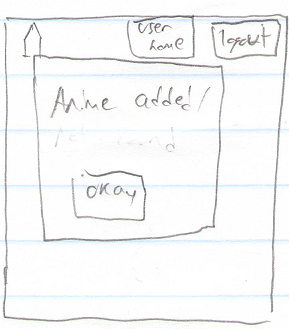 User
home
logout
Anime added/
okay